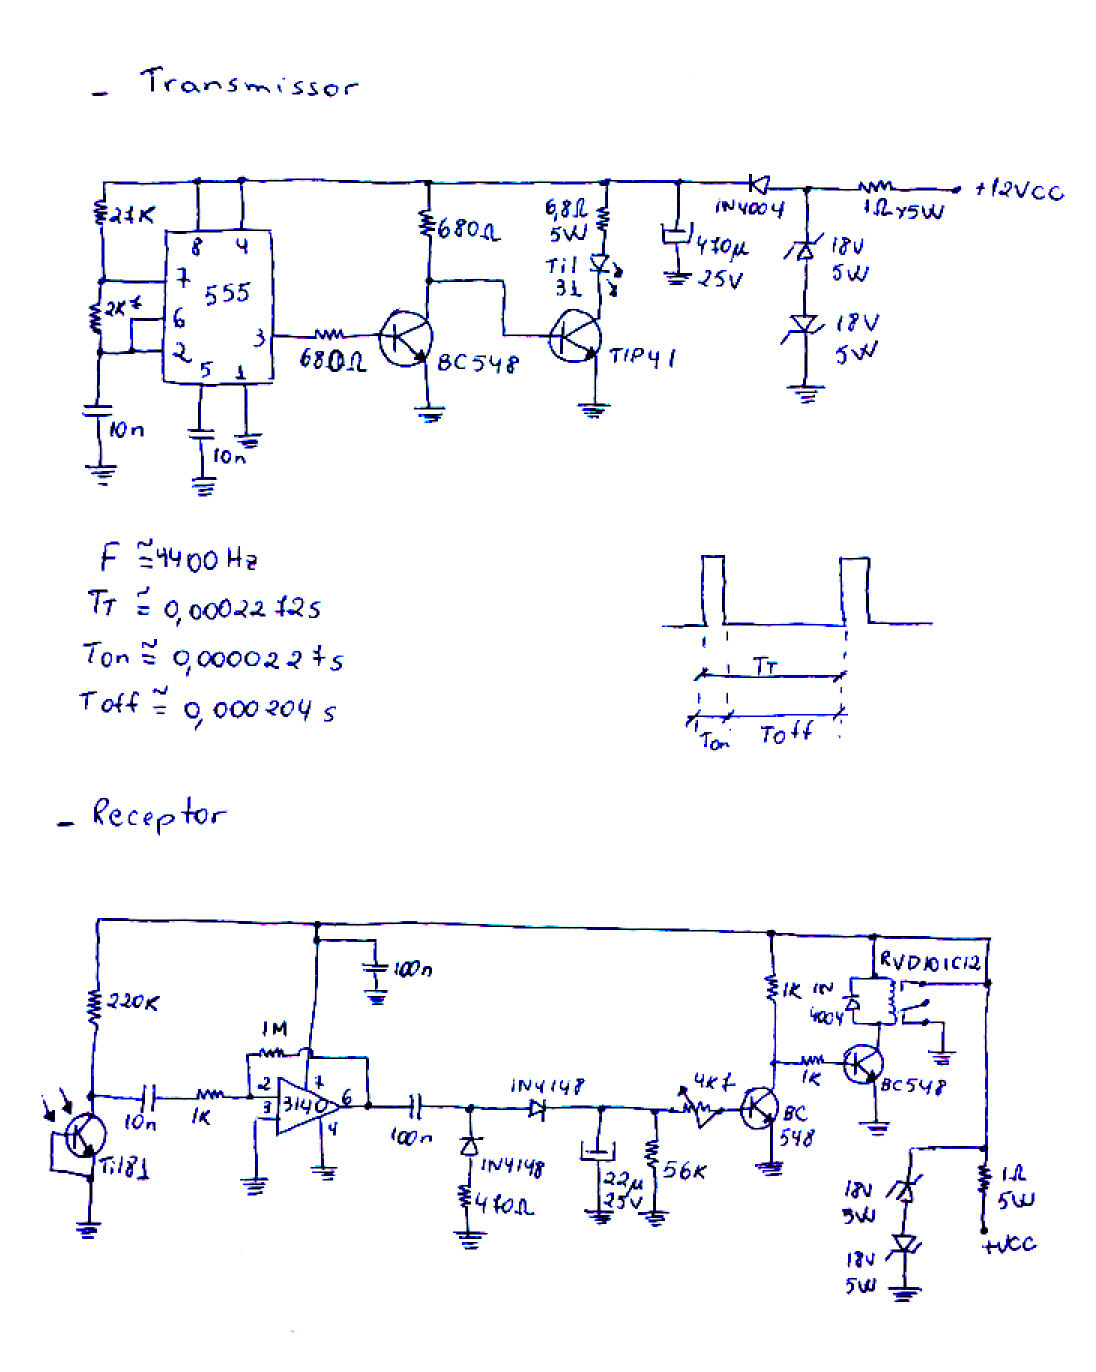 - Transmissor
+12VCC
1N4004
1Ω x 5W
27K
680Ω
6,8Ω
5W
470µ
25V
18V
5W
8
4
7
555
Til
31
2K7
6
3
2
18V
5W
680Ω
BC548
TIP41
5
1
10n
10n
F ≅ 4400 Hz
TT ≅ 0,0002272s
Ton ≅ 0,0000227s
Toff ≅ 0,000204 s
TT
Ton
Toff
- Receptor
RVD101C12
100n
220K
1K
1N
4004
1M
2
7
3
3140
6
4
10n
1K
100n
1N4148
4K7
1K
BC548
BC
548
Til81
1N4148
470Ω
22µ
25V
56K
18V
5W
1Ω
5W
+VCC
18V
5W